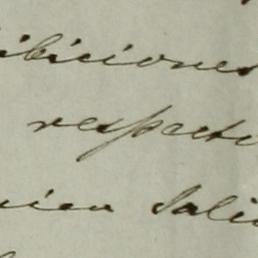 ibiciones
respecto
nica Sali